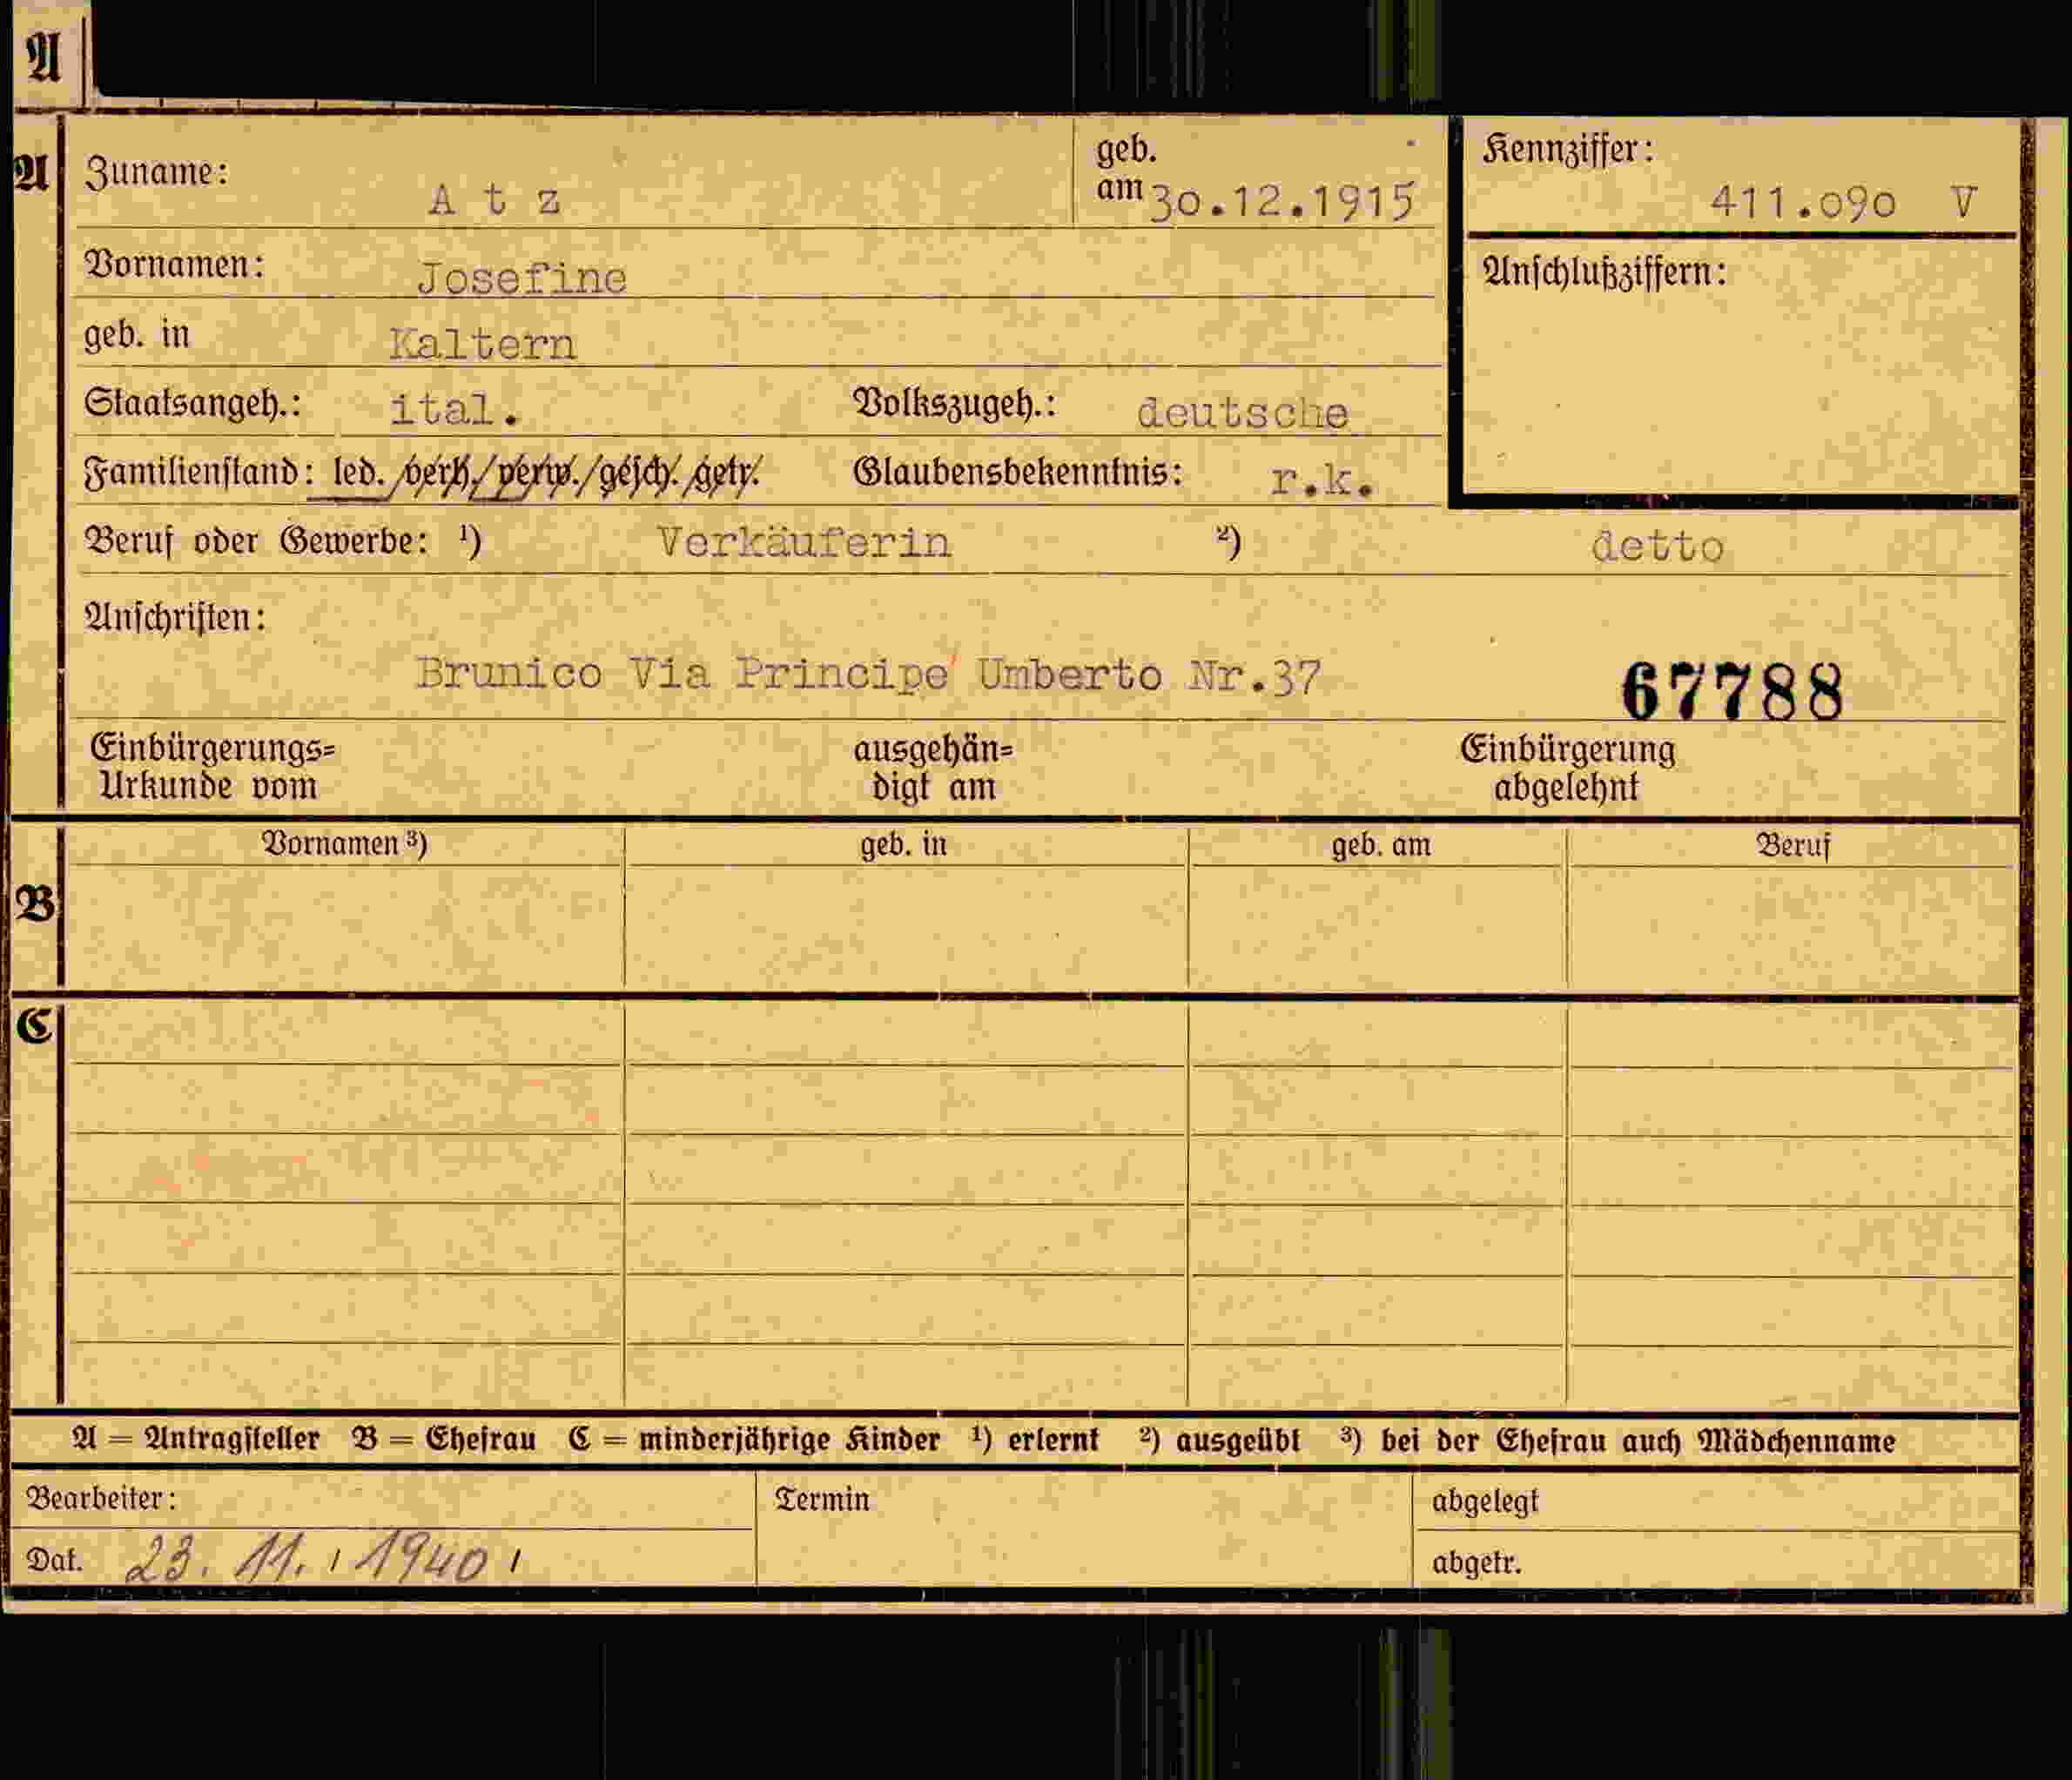 A
A
Zuname: Atz geb. am 30.12.1915
Kennziffer: 411.090 V
Vornamen: Josefine
Anschlußziffern:
geb. in Kaltern
Staatsangeh.: ital. Volkszugeh.: deutsche
Familienstand: led. /verh./verw./gesch./getr. Glaubensbekenntnis: r.k.
Beruf oder Gewerbe: ¹) Verkäuferin ²) detto
Anschriften:
Brunico Via Principe Umberto Nr.37 67788
Einbürgerungs= ausgehän= Einbürgerung
Urkunde vom digt am abgelehnt
Vornamen ³) geb. in geb. am Beruf
B
C
A = Antragsteller B = Ehefrau C = minderjährige Kinder ¹) erlernt ²) ausgeübt ³) bei der Ehefrau auch Mädchenname
Bearbeiter: Termin abgelegt
Dat. 23. 11. 1940 abgetr.